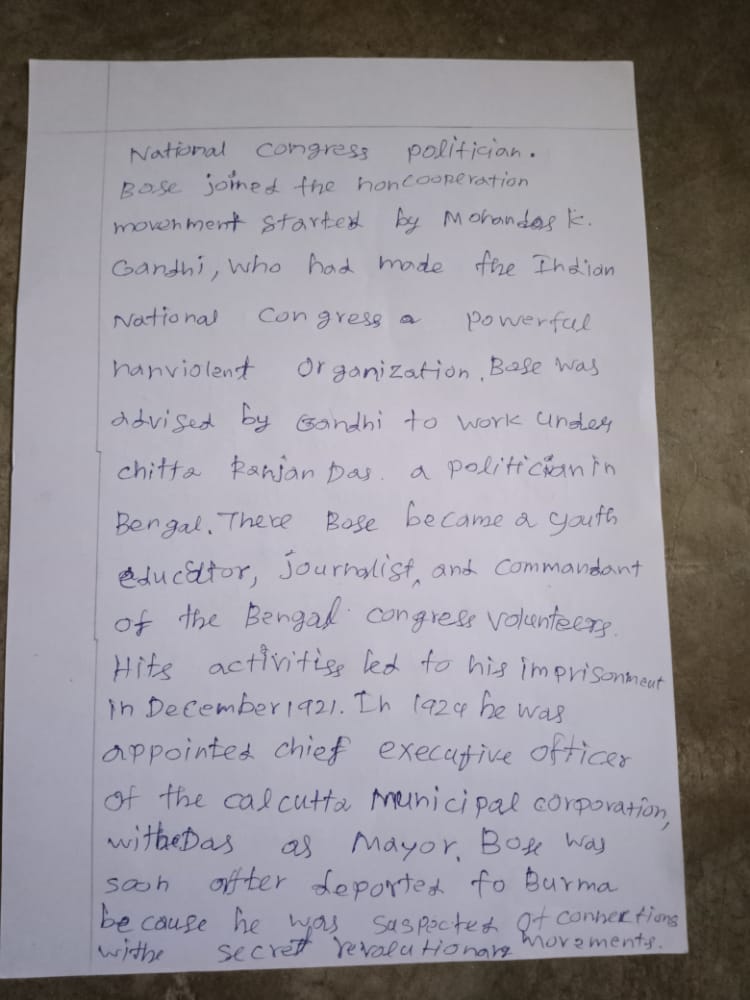 National congress politician.
Bose joined the noncooperation
movenment started by Mohandas K.
Gandhi, who had made the Indian
National Congress a powerful
nanviolent Organization. Bose was
advised by Gandhi to work under
chitta Ranjan Das. a politician in
Bengal. There Bose became a youth
educator, journalist, and commandant
of the Bengal congress volunteers.
Hits activities led to his imprisonment
in December 1921. In 1924 he was
appointed chief executive officer
of the calcutta Municipal corporation,
withe Das as Mayor. Bose was
soon after deported to Burma
because he was suspected of connections
withe secret revolutionary movements.